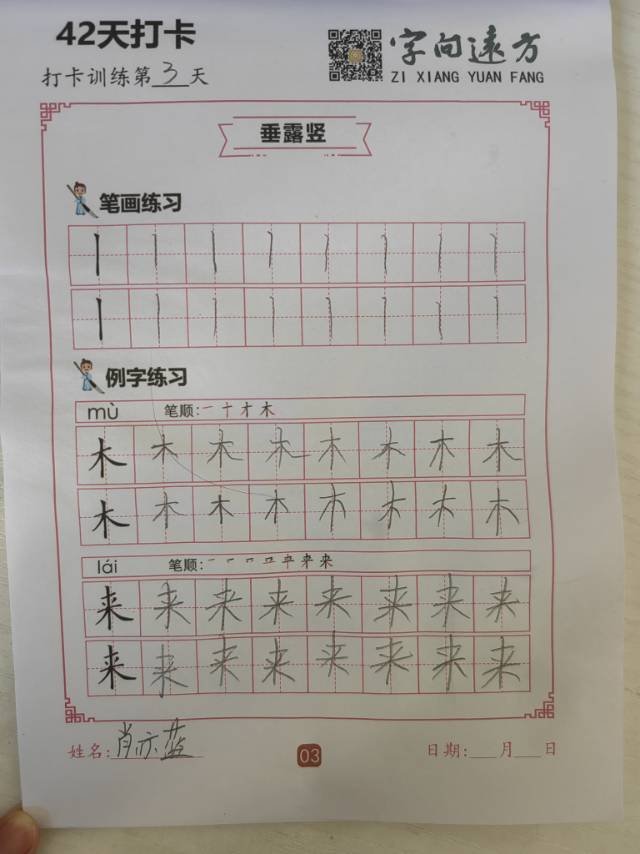 42天打卡
打卡训练第3天
字向远方
ZI XIANG YUAN FANG
垂露竖
笔画练习
例字练习
mù 笔顺:一 十 才 木
木 木 木 木 木 木 木 木
木 木 木 木 木 木 木 木
lái 笔顺:
来 来 来 来 来 来 来 来
来 来 来 来 来 来 来 来
姓名:肖亦蓝
03
日期:___月___日